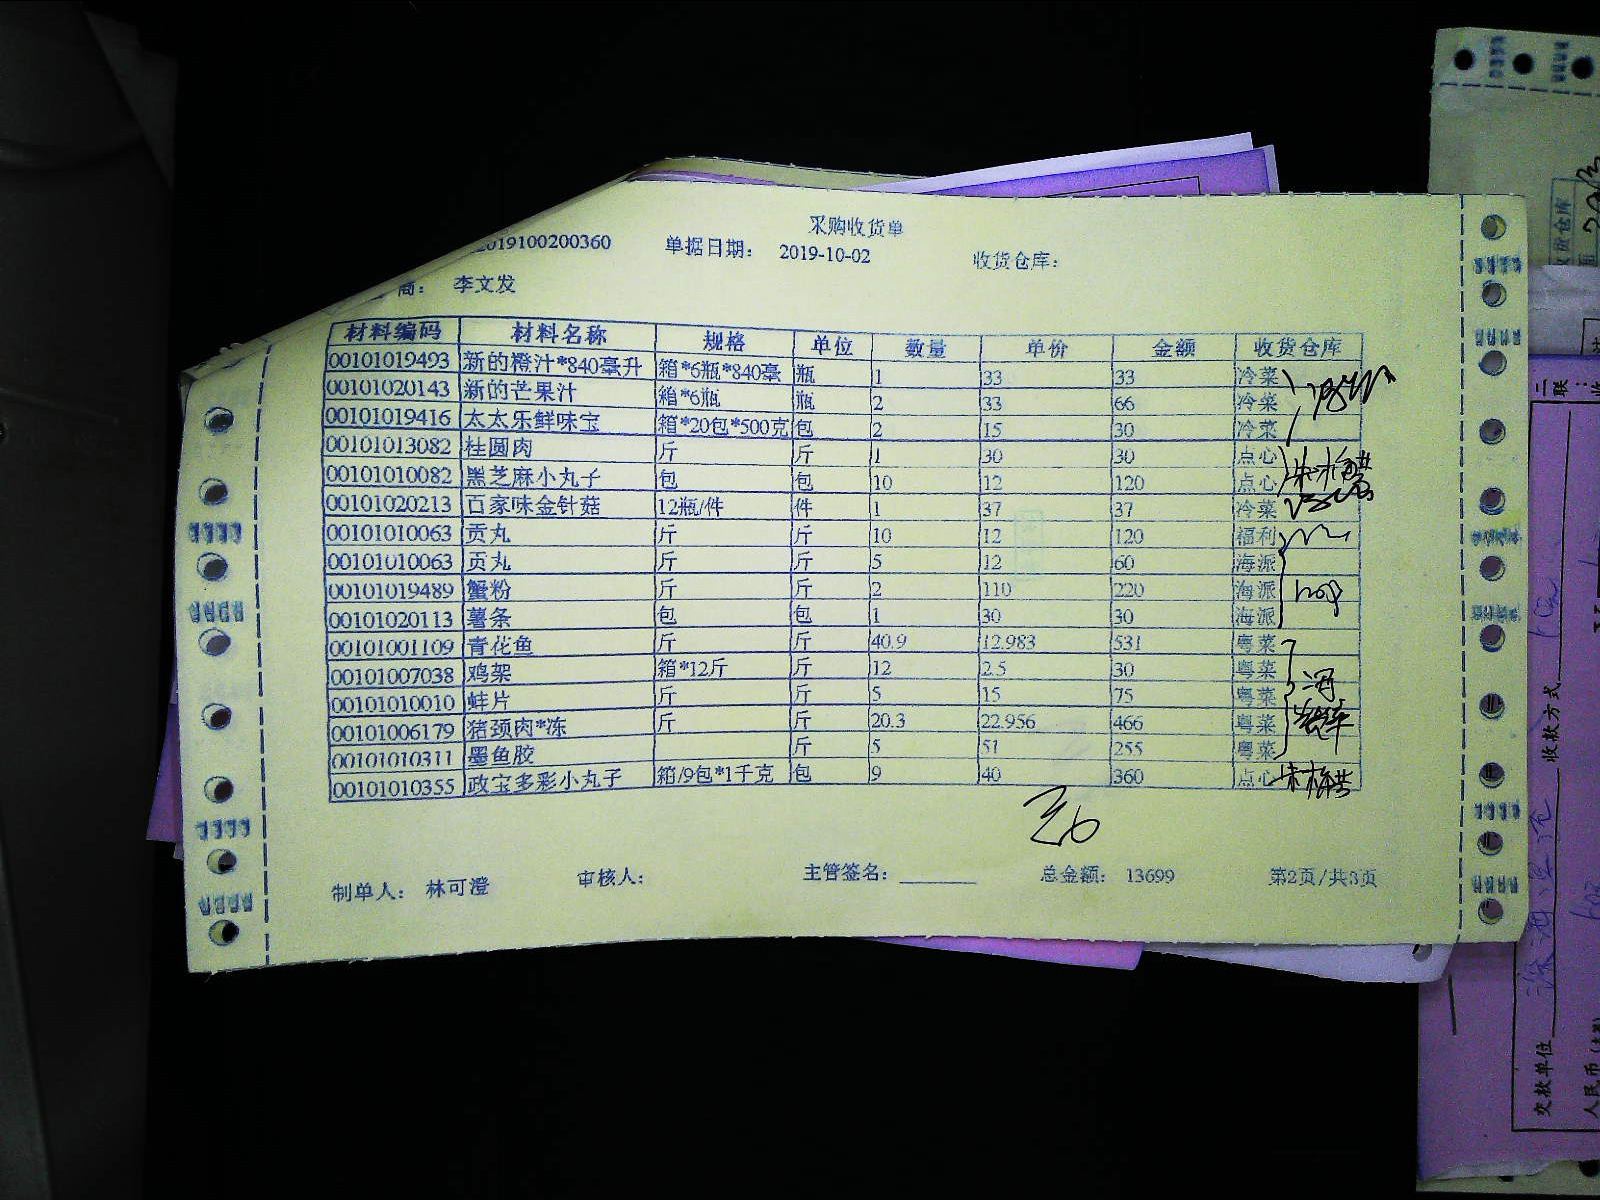 采购收货单
2019100200360 单据日期： 2019-10-02 收货仓库：
商： 李文发
材料编码 材料名称 规格 单位 数量 单价 金额 收货仓库
00101019493 新的橙汁*840毫升 箱*6瓶*840毫 瓶 1 33 33 冷菜
00101020143 新的芒果汁 箱*6瓶 瓶 2 33 66 冷菜
00101019416 太太乐鲜味宝 箱*20包*500克 包 2 15 30 冷菜
00101013082 桂圆肉 斤 斤 1 30 30 点心
00101010082 黑芝麻小丸子 包 包 10 12 120 点心
00101020213 百家味金针菇 12瓶/件 件 1 37 37 冷菜
00101010063 贡丸 斤 斤 10 12 120 福利
00101010063 贡丸 斤 斤 5 12 60 海派
00101019489 蟹粉 斤 斤 2 110 220 海派
00101020113 薯条 包 包 1 30 30 海派
00101001109 青花鱼 斤 斤 40.9 12.983 531 粤菜
00101007038 鸡架 箱*12斤 斤 12 2.5 30 粤菜
00101010010 蚌片 斤 斤 5 15 75 粤菜
00101006179 猪颈肉*冻 斤 斤 20.3 22.956 466 粤菜
00101010311 墨鱼胶 斤 5 51 255 粤菜
00101010355 政宝多彩小丸子 箱/9包*1千克 包 9 40 360 点心
制单人： 林可澄 审核人： 主管签名： 总金额： 13699 第2页/共3页
收货仓库
二联：
收款方式
交款单位
人民币